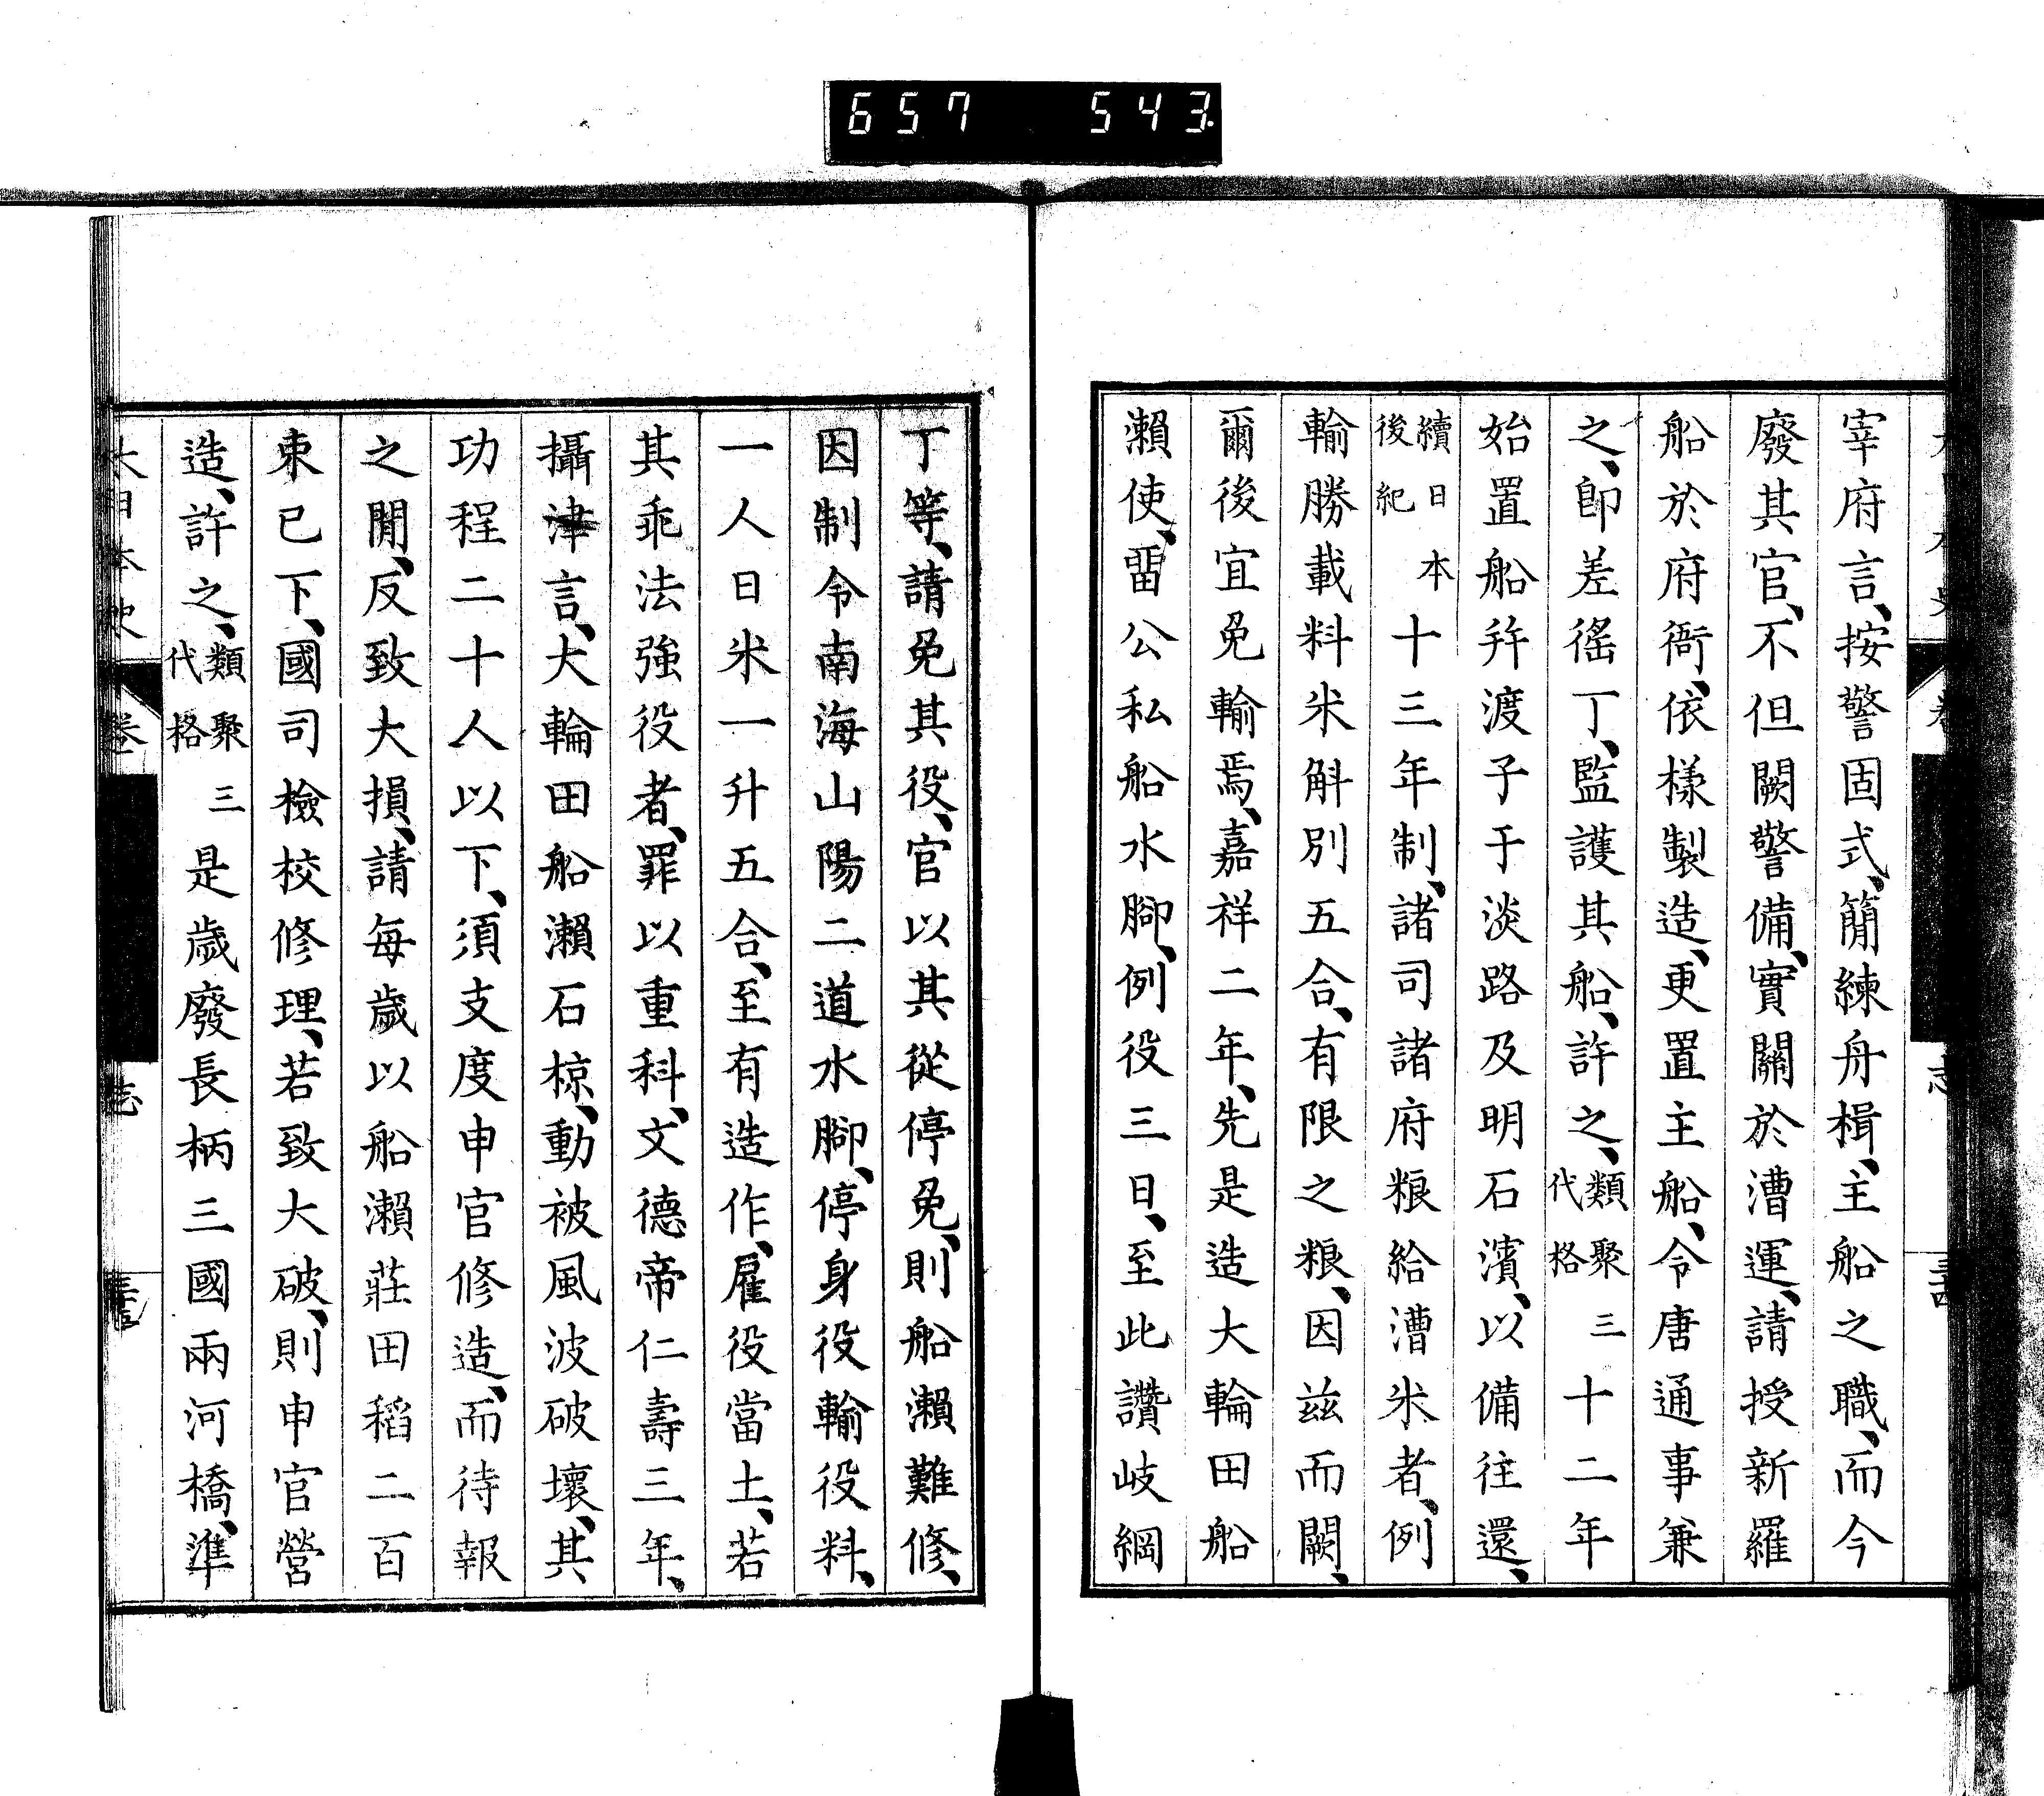 657 543
宰府言、按警固式、簡練舟楫、主船之職、而今
廢其官、不但闕警備、實關於漕運、請授新羅
船於府衙、依樣製造、更置主船、令唐通事兼
之、卽差徭丁、監護其船、許之、類聚三代格十二年
始置船幷渡子于淡路及明石濱、以備往還、
續日本後紀十三年制、諸司諸府粮給漕米者、例
輸勝載料米斛別五合、有限之粮、因茲而闕、
爾後宜免輸焉、嘉祥二年、先是造大輪田船
瀨使、畱公私船水腳、例役三日、至此讚岐綱
丁等、請免其役、官以其從停免、則船瀨難修、
因制令南海山陽二道水腳、停身役輸役料、
一人日米一升五合、至有造作、雇役當土、若
其乖法強役者、罪以重科、文德帝仁壽三年、
攝津言、大輪田船瀨石椋、動被風波破壞、其
功程二十人以下、須支度申官修造、而待報
之閒、反致大損、請每歲以船瀨莊田稻二百
束已下、國司檢校修理、若致大破、則申官營
造、許之、類聚三代格是歲廢長柄三國兩河橋、準
大日本史 卷 志